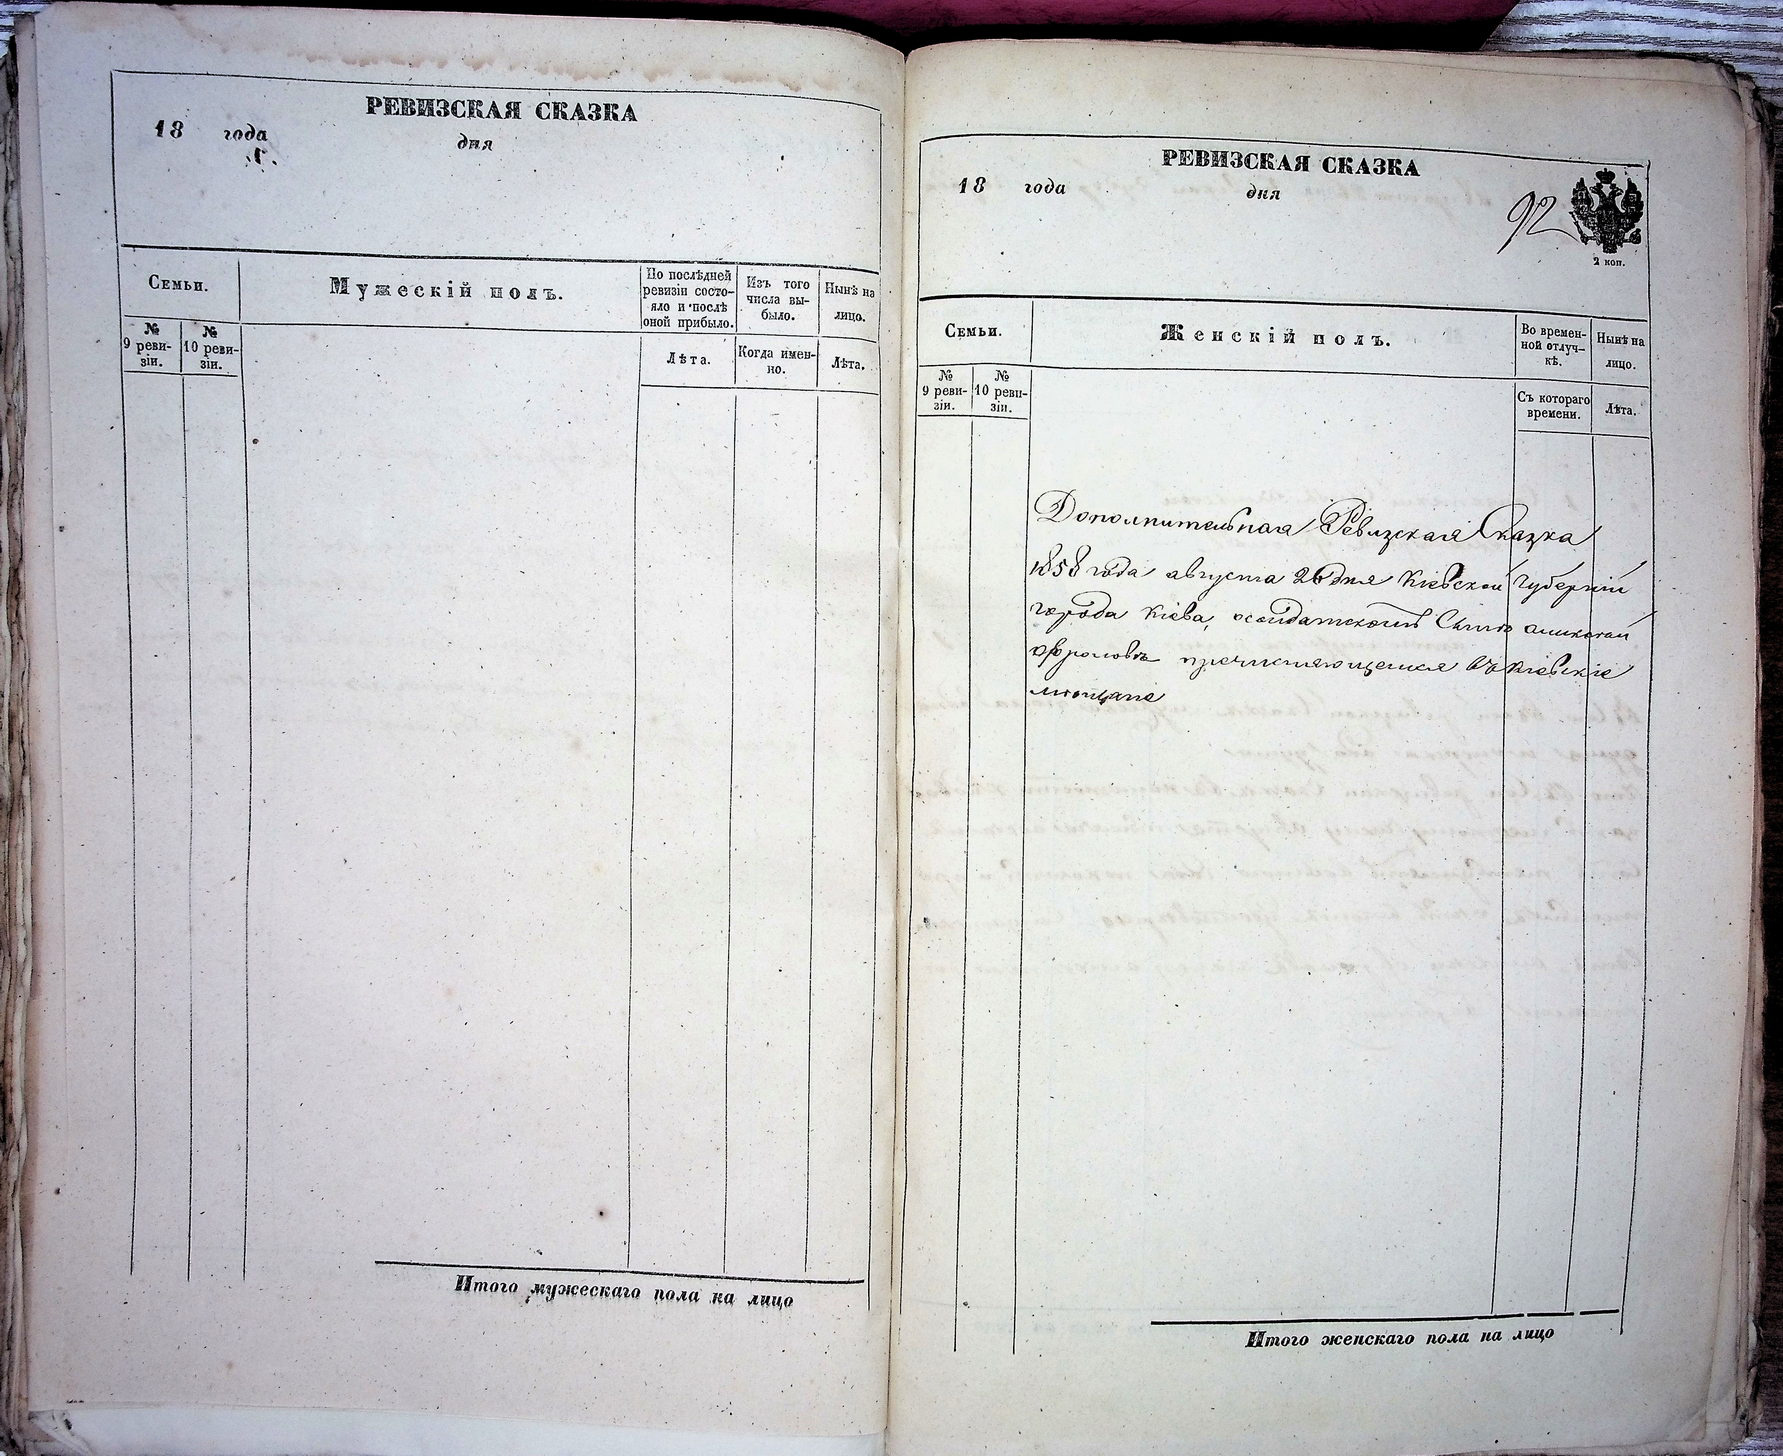 РЕВИЗСКАЯ СКАЗКА
18 года дня
Семьи.
Мужескій полъ.
По послѣдней ревизіи состояло и послѣ оной прибыло.
Изъ того числа выбыло.
Нынѣ на лицо.
№ 9 ревизіи.
№ 10 ревизіи.
Лѣта.
Когда именно.
Лѣта.
Итого мужескаго пола на лицо
РЕВИЗСКАЯ СКАЗКА
18 года дня
92
2 коп.
Семьи.
Женскій полъ.
Во временной отлучкѣ.
Нынѣ на лицо.
№ 9 ревизіи.
№ 10 ревизіи.
Съ котораго времени.
Лѣта.
Дополнительная Ревизская Сказка
1858 года августа 26 дня Кіевской Губерніи
города Кіева, о солдатскомъ Сынѣ
причисляющемся въ Кіевскіе
мѣщане
Итого женскаго пола на лицо